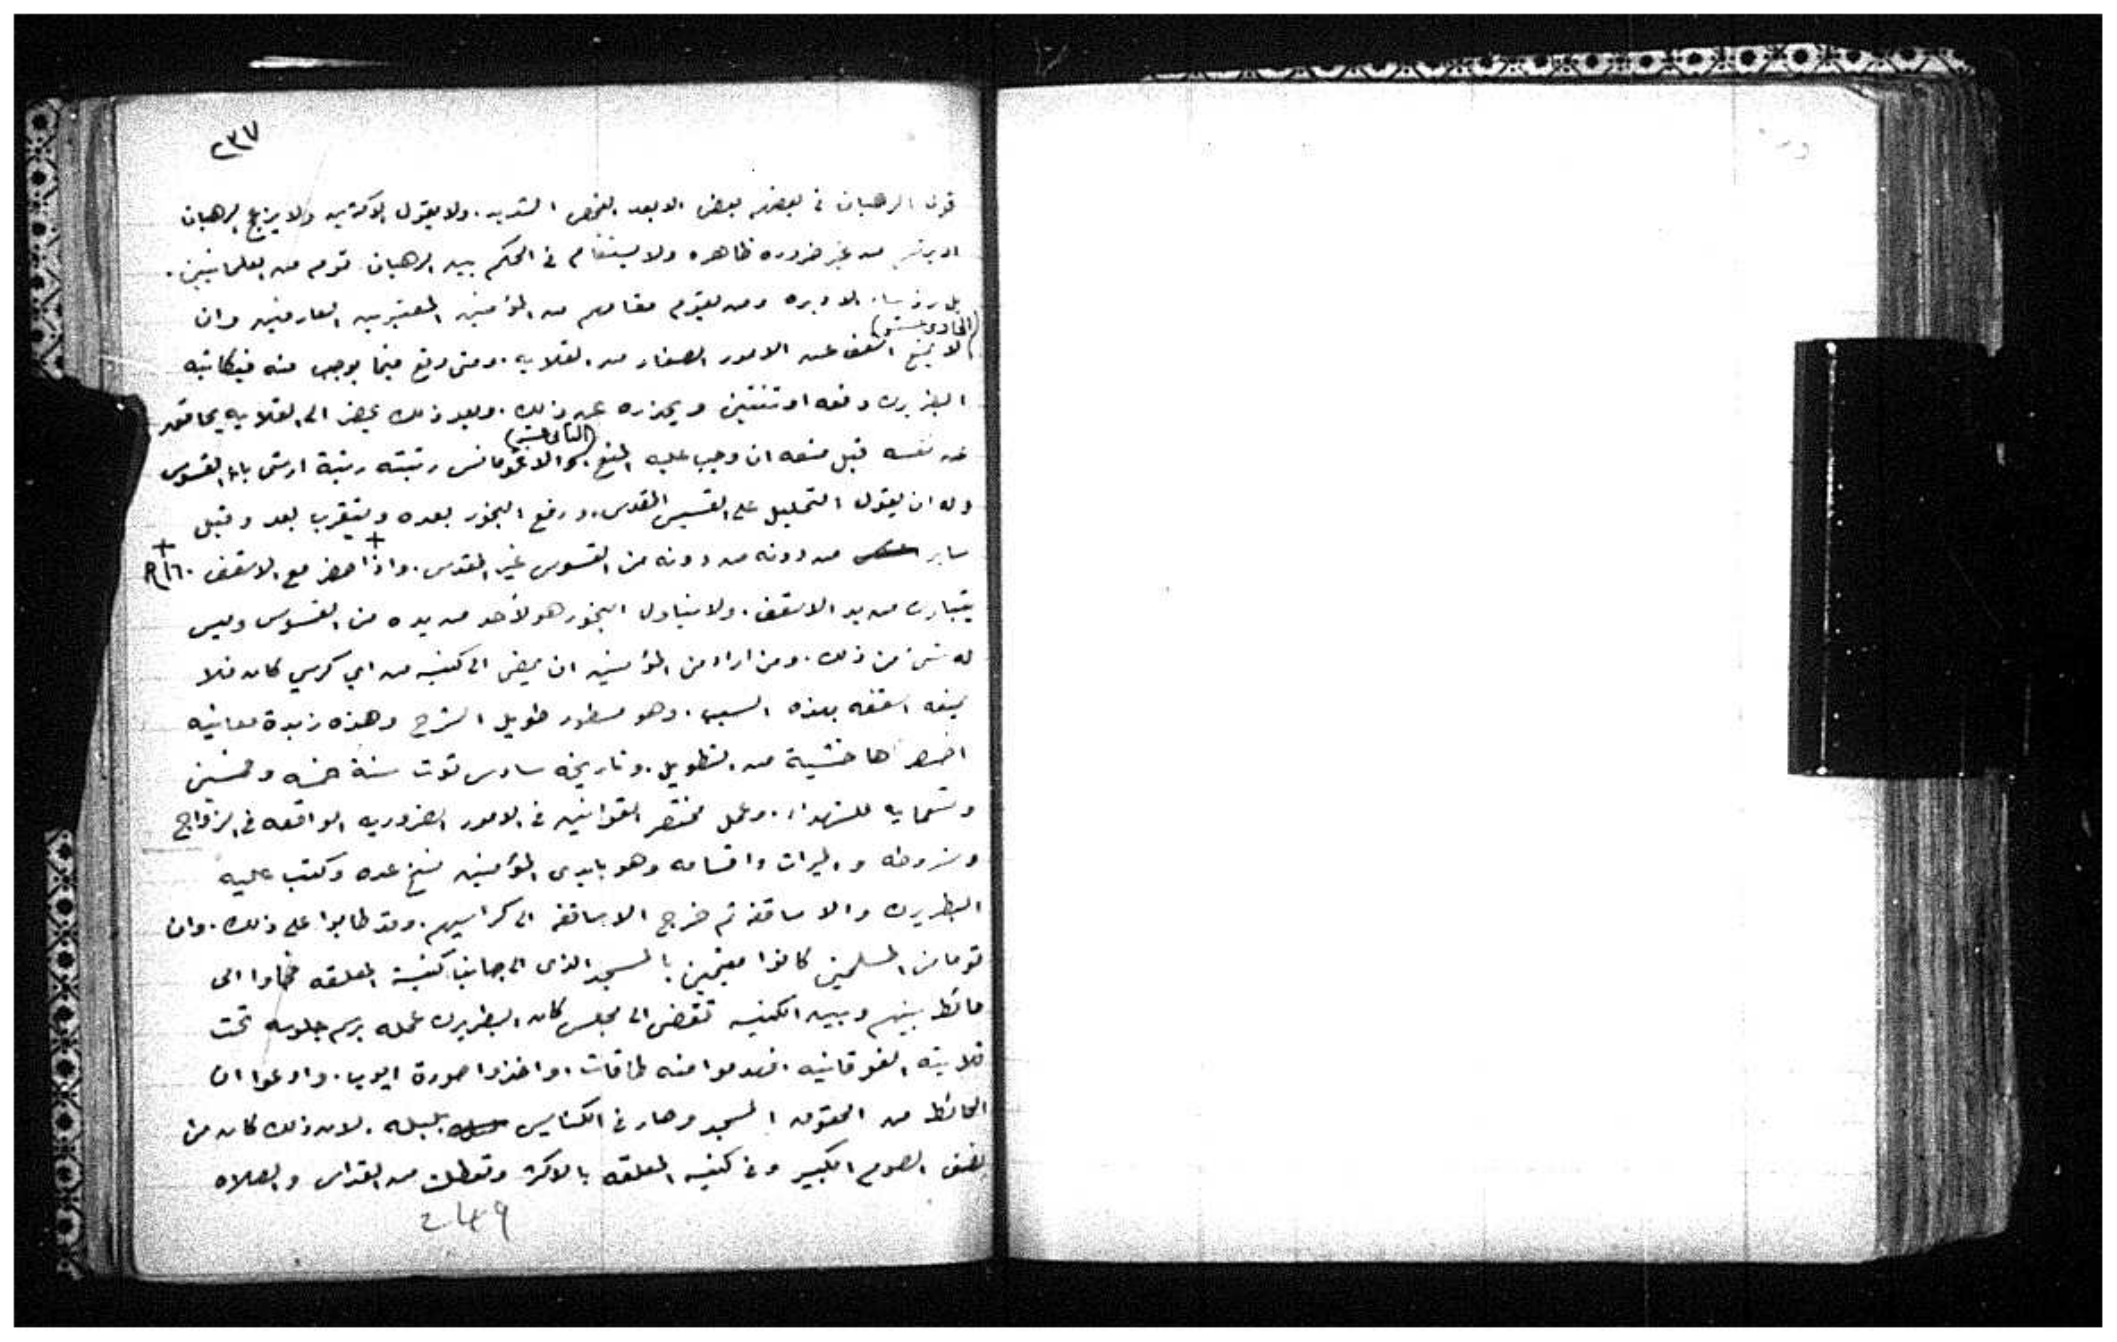 ٢٣٧
قول الرهبان في بعضهم بعض الا بعد الفحص الشديد. ولا يقول الاكثريه ولا يزعج الرهبان
من غير ضروره ظاهره ولا يستخدم في الحكم بين الرهبان قوم من العلمانيين.
بل رؤساء الاديره ومن يقوم مقامهم من المؤمنين المعتبرين العارفين وان
(الحادى عشر)
لا يمنع اسقف عن الامور الصغار من القلايه. ومتى وقع فيما يوجب منه فيكاتبه
البطريرك دفعه او تنتين ويحذره عن ذلك. وبعد ذلك يحضر الى القلايه يحاقق
عن نفسه قبل منعه ان وجب عليه المنع
(الثانى عشر)
والاغومانس رتبته رتبة ارشى بابا القسوس
وله ان يقول التحليل على القسيس المقدس. ورفع البخور بعده ويتقرب بعد وقبل
ساير من دونه من دونه من القسوس غير المقدس. واذا حضر مع الاسقف ١٦٠
يتبارك من يد الاسقف. ولا يناول البخور هو لأحد من يده من القسوس وليس
له شئ من ذلك. ومن اراد من المؤمنين ان يمضى الى كنيسه من اي كرسي كان فلا
يمنعه اسقفه بهذه السبب. وهو مسطور طويل الشرح وهذه زبدة معانيه
خشية من التطويل. وتاريخه سادس توت سنة خمسه وخمسين
وتسعمايه للشهداء. وعمل مختصر القوانين في الامور الضروريه الواقعه في الزواج
وشروطه والميراث واقسامه وهو بايدى المؤمنين نسخ عده وكتب عليه
البطريرك والاساقفه ثم خرج الاساقفه الى كراسيهم. وقد طابوا على ذلك. وان
قوما من المسلمين كانوا مقيمين بالمسجد الذى الى جانب كنيسة المعلقه فجاوا الى
حائط بينهم وبين الكنيسه تفضى الى مجلس كان البطريرك عمله برسم جلوسه تحت
قلايته الفوقانيه. فهدموا منه طاقات. واخذوا صورة ايوب. وادعوا ان
الحائط من الحقوق المسجد وصار في الكنايس بلبله. لان ذلك كان من
نصف الصوم الكبير وفى كنيسه المعلقه بالاكثر وتعطلت من القداس والصلاه
249